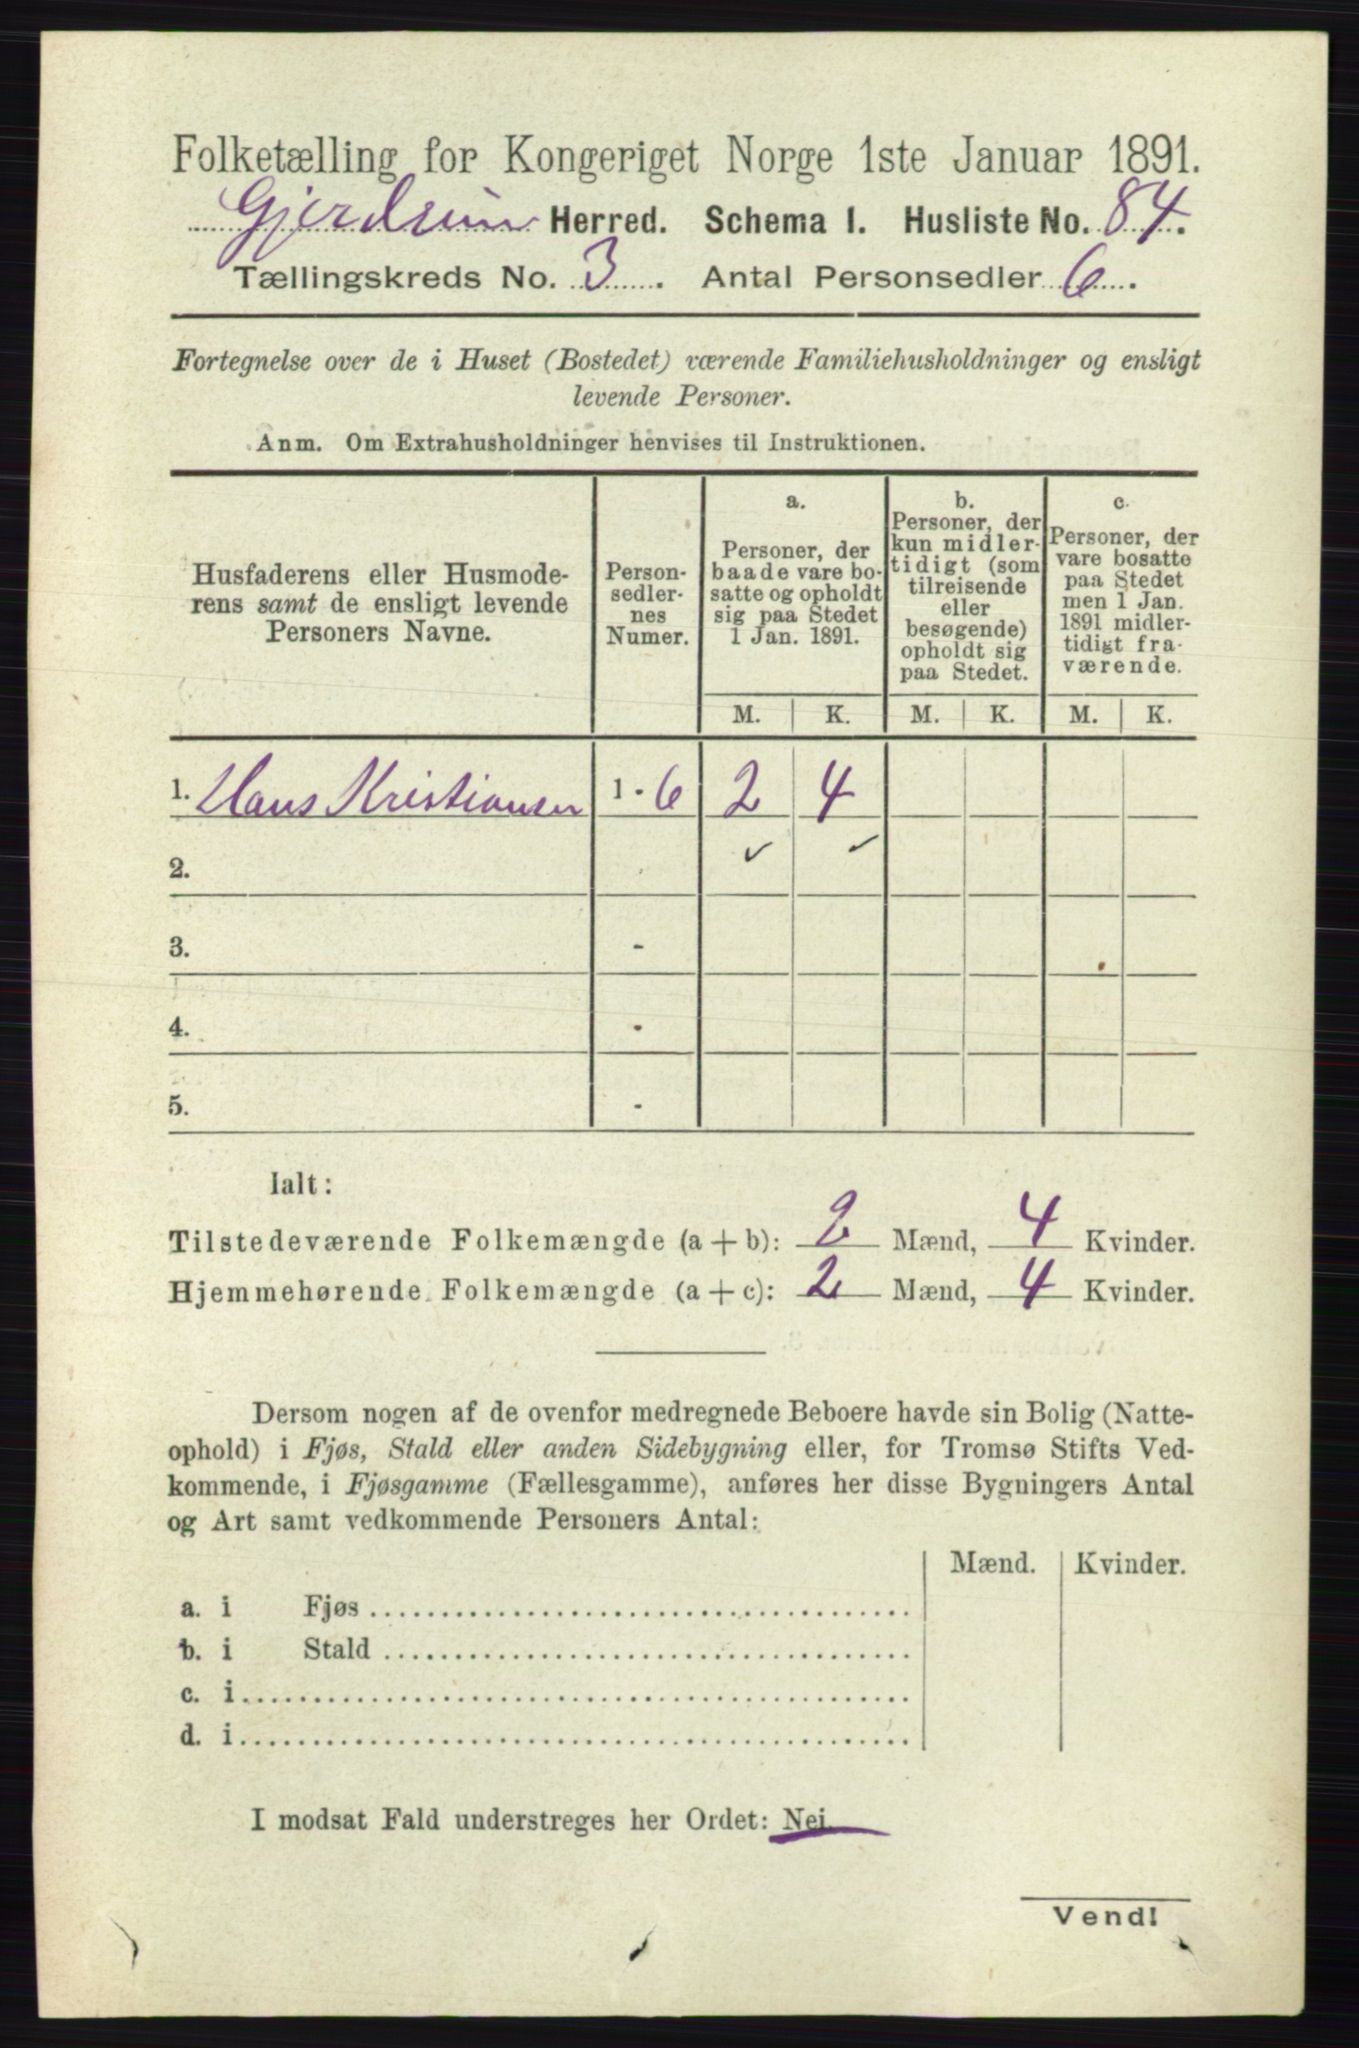 Folketælling for Kongeriget Norge 1ste Januar 1891.
Gjerdrum Herred. Schema I. Husliste No. 84.
Tællingskreds No. 3. Antal Personsedler 6.
Fortegnelse over de i Huset (Bostedet) værende Familiehusholdninger og ensligt
levende Personer.
Anm. Om Extrahusholdninger henvises til Instruktionen.
Husfaderens eller Husmode-
rens samt de ensligt levende
Personers Navne.
Person-
sedler-
nes
Numer.
a.
Personer, der
baade vare bo-
satte og opholdt
sig paa Stedet
1 Jan. 1891.
b.
Personer, der
kun midler-
tidigt (som
tilreisende
eller
besøgende)
opholdt sig
paa Stedet.
c.
Personer, der
vare bosatte
paa Stedet
men 1 Jan.
1891 midler-
tidigt fra-
værende.
M. K. M. K. M. K.
1. Hans Kristiansen 1 - 6 2 4
2. ✓ ✓
3. -
4. -
5. -
Ialt:
Tilstedeværende Folkemængde (a + b): 2 Mænd, 4 Kvinder.
Hjemmehørende Folkemængde (a + c): 2 Mænd, 4 Kvinder.
Dersom nogen af de ovenfor medregnede Beboere havde sin Bolig (Natte-
ophold) i Fjøs, Stald eller anden Sidebygning eller, for Tromsø Stifts Ved-
kommende, i Fjøsgamme (Fællesgamme), anføres her disse Bygningers Antal
og Art samt vedkommende Personers Antal:
Mænd. Kvinder.
a. i Fjøs
b. i Stald
c. i
d. i
I modsat Fald understreges her Ordet: Nei.
Vend!